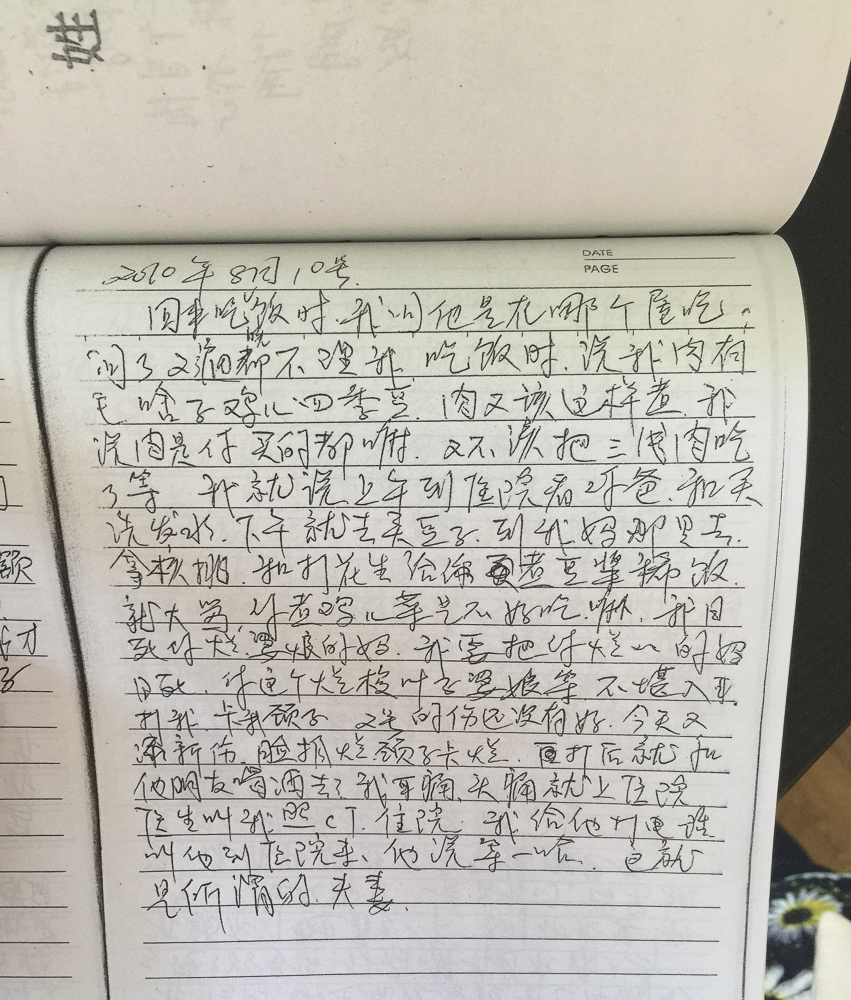 姓
DATE
PAGE
2010年8月10号.
回来吃饭时.我问他是在哪个屋吃。
问了又遍都不理我 吃饭时.说我肉有
毛.啥子鸡儿四季豆.肉又该这样煮.我
说肉是你买的都嘛.又不该把三儿肉吃
了等 我就说上午到医院看我爸.和买
洗发水.下午就去买豆子.到我妈那里去.
拿核桃.和打花生给俩煮豆浆稀饭.
就大骂.你煮鸡儿菜是不好吃.嘛.我日
死你烂婆娘的妈.我要把你烂的妈
日死.你这个烂婆娘等 不堪入耳.
打我.卡我颈子 的伤还没有好.今天又
添新伤.脸抓烂.颈子卡烂.打后就和
他朋友喝酒去了.我耳痛.头痛就上医院
医生叫我照CT.住院.我给他打电话
叫他到医院来、他说等一哈.这就
是所谓的.夫妻.
额
才